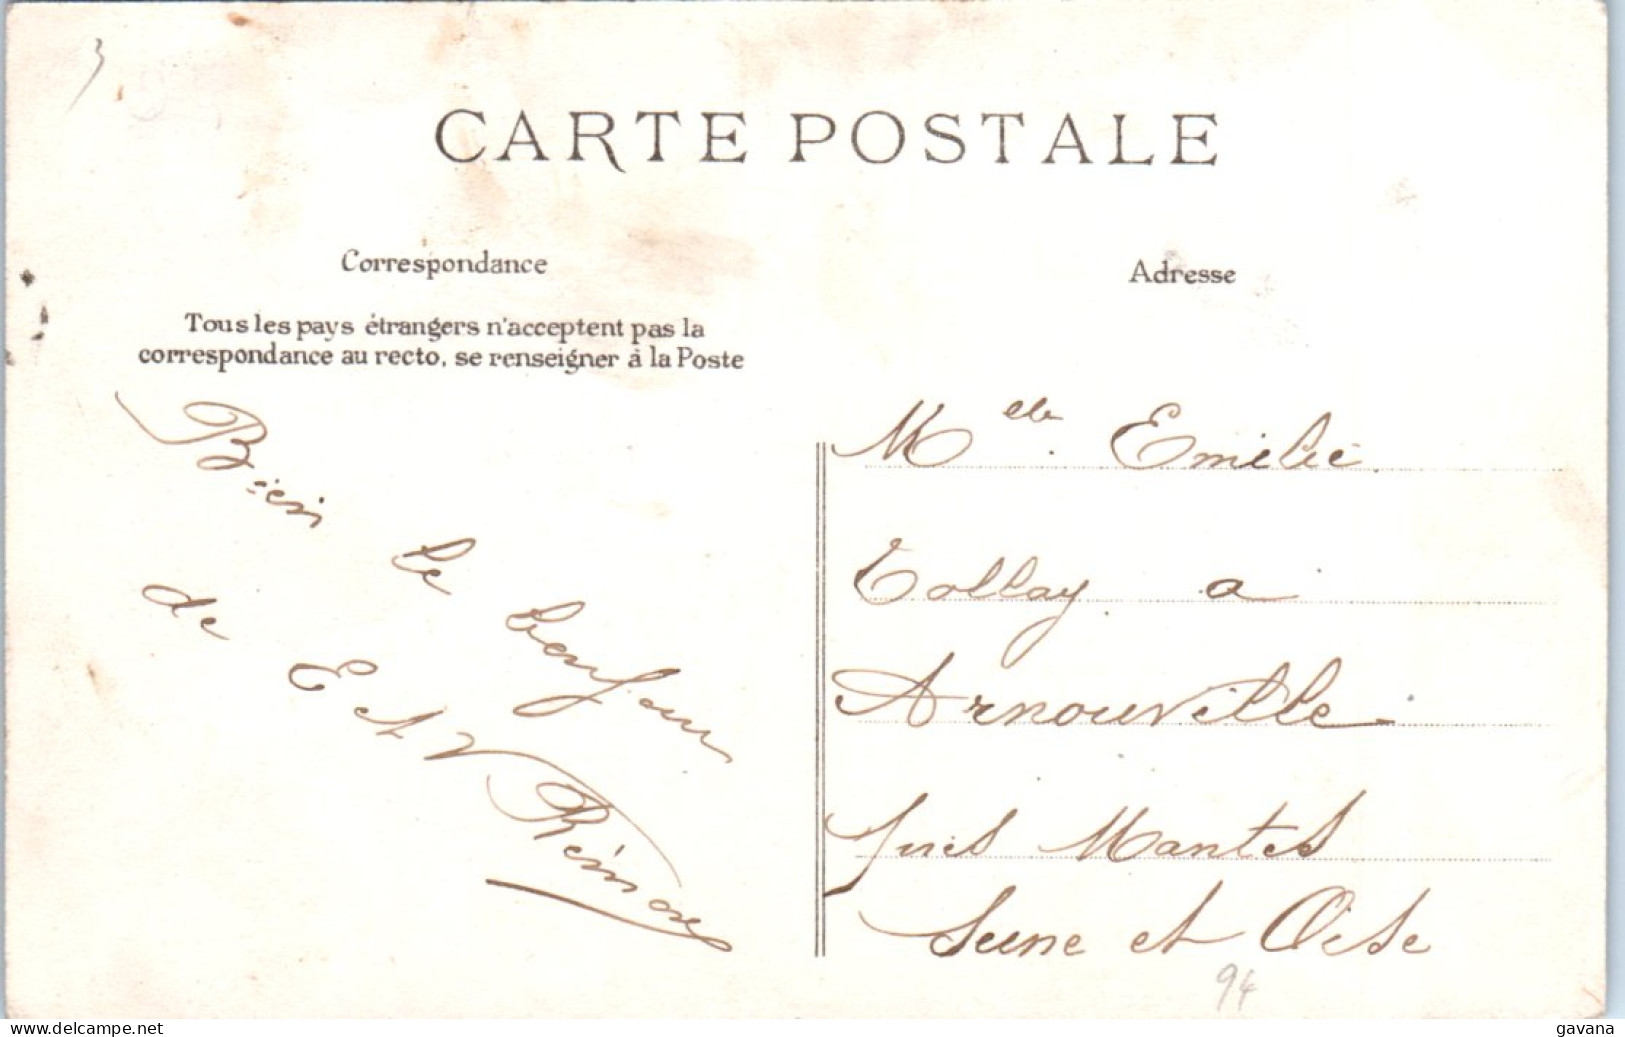 3
CARTE POSTALE
Correspondance
Tous les pays étrangers n'acceptent pas la
correspondance au recto, se renseigner à la Poste
Bien le bonjour
de E et V
Adresse
Melle Emilie
Tollay a
Arnouville
près Mantes
Seine et Oise
94
www.delcampe.net
gavana